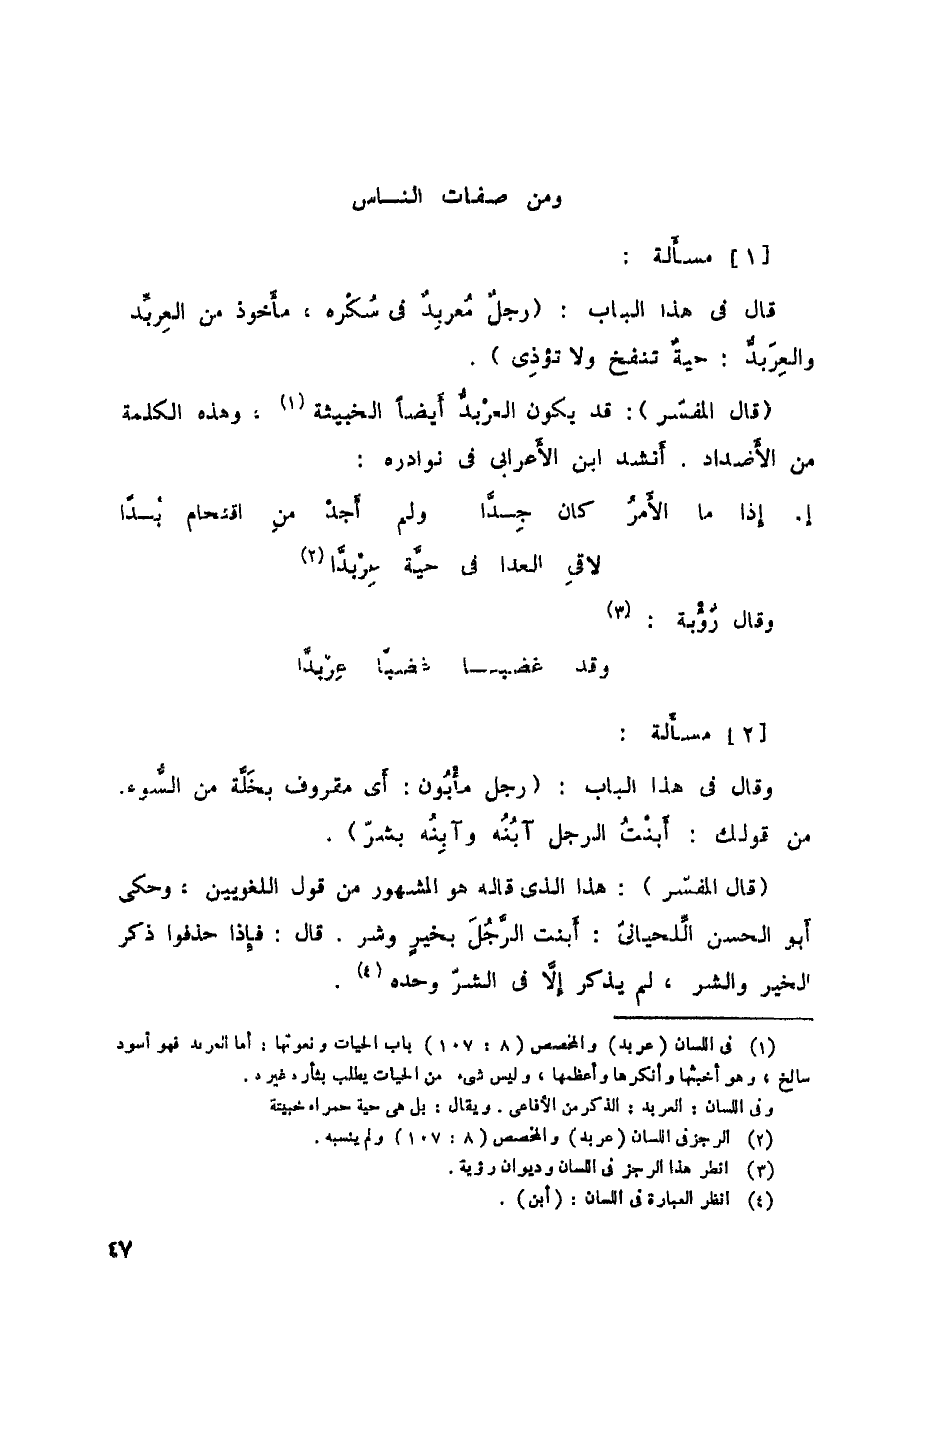 ومن صفات النـاس
[١] مسـألة :
قال فى هذا الباب : (رجلٌ مُعربِدٌ فى سُكْره ، مأخوذ من العِربِّد
والعِرَبدُّ : حيةٌ تنفخ ولا تؤذِى ) .
(قال المفسّر ) : قد يكون العرْبدُّ أيضاً الخبيثة (١) ، وهذه الكلمة
من الأَضداد . أَنشد ابن الأَعرابى فى نوادره :
إ. إذا ما الأَمرُ كان جِـدَّا ولم أَجدْ منِ اقتحام بُـدَّا
لاقىِ العدا فى حيَّة عِرْبدَّا (٢)
وقال رُؤْبة : (٣)
وقد غضبـا غضبًا عِرْبدَّا
[٢] مسـألة :
وقال فى هذا الباب : (رجل مأْبُون : أَى مقروف بخَلَّة من السُّوء.
من قولك : أَبنْتُ الرجل آبُنُه وآبِنُه بشرّ ) .
(قال المفسّر ) : هذا الذى قاله هو المشهور من قول اللغويين ؛ وحكى
أَبو الحسن اللِّحيانىُّ : أَبنت الرَّجُلَ بخيرٍ وشر . قال : فإِذا حذفوا ذكر
الخير والشر ، لم يذكر إِلَّا فى الشرّ وحده (٤) .
(١) فى اللسان (عربد) والمخصص (٨ : ١٠٧) باب الحيات ونعوتها : أما العربد فهو أسود
سالخ ، وهو أخبثها وأنكرها وأعظمها ، وليس شىء من الحيات يطلب بثأره غيره .
وفى اللسان : العربد : الذكر من الأفاعى . ويقال : بل هى حية حمراء خبيثة
(٢) الرجز فى اللسان (عربد) والمخصص (٨ : ١٠٧) ولم ينسبه .
(٣) انظر هذا الرجز فى اللسان وديوان رؤبة .
(٤) انظر العبارة فى اللسان : (أبن) .
٤٧